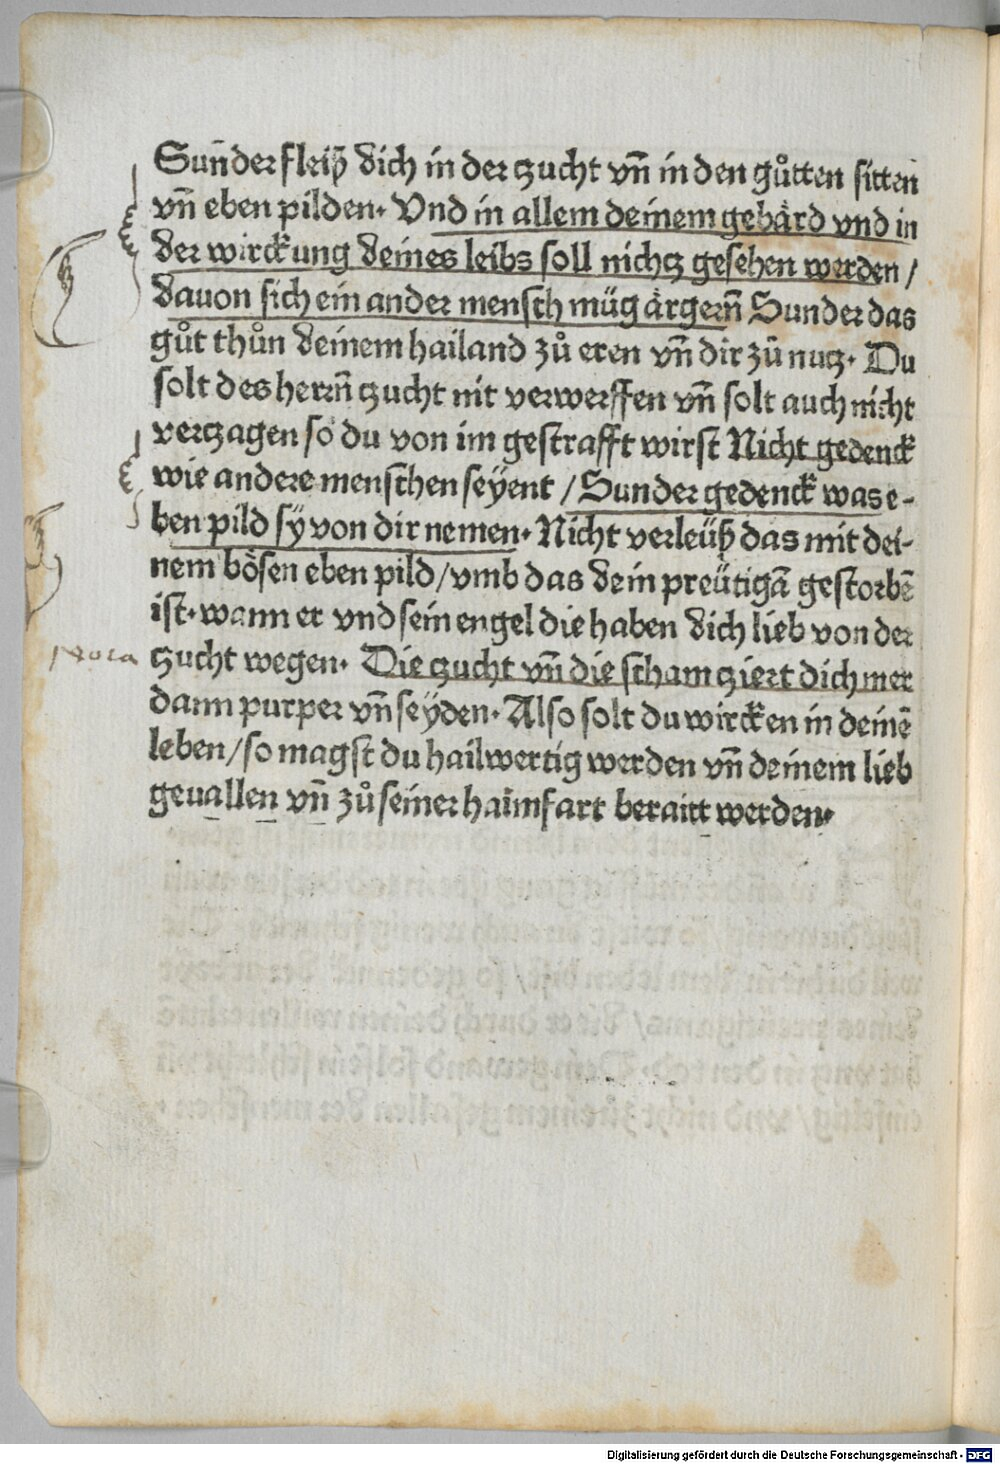 Sun̄der fleiß dich in der zucht vn̄ in den gůtten sitten
vn̄ eben pilden. Vnd in allem deinem gebärd vnd in
der wirckung deines leibs soll nichtz gesehen werden /
dauon sich ein ander mensch müg ärgern̄ Sunder das
gůt thůn deinem hailand zů eren vn̄ dir zů nutz. Du
solt des herrn̄ zucht nit verwerffen vn̄ solt auch nicht
verzagen so du von im gestrafft wirst Nicht gedenck
wie andere menschen seÿent / Sunder gedenck was e-
ben pild sÿ von dir nemen. Nicht verleüß das mit dei-
nem bösen eben pild / vmb das dein preütigā gestorbē
ist. wann er vnd sein engel die haben dich lieb von der
Nota zucht wegen. Die zucht vn̄ die scham ziert dich mer
dann purper vn̄ seÿden. Also solt du wircken in deinē
leben / so magst du hailwertig werden vn̄ deinem lieb
geuallen vn̄ zů seiner haimfart beraitt werden.
Digitalisierung gefördert durch die Deutsche Forschungsgemeinschaft - DFG